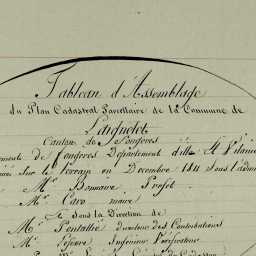 Tableau d'Assemblage
du Plan Cadastral Parcellaire de la Commune de
Laignelet
Canton de Fougeres
de Fougeres Département d'ille et Vilaine
sur le terrain en Decembre 1811 sous l'admi
Mr. Bonnaire Prefet
Mr. Caro maire
Et sous la Direction de
Mr. Pentallié directeur des Contributions
Mr. Lefevre Ingénieur Vérificateur